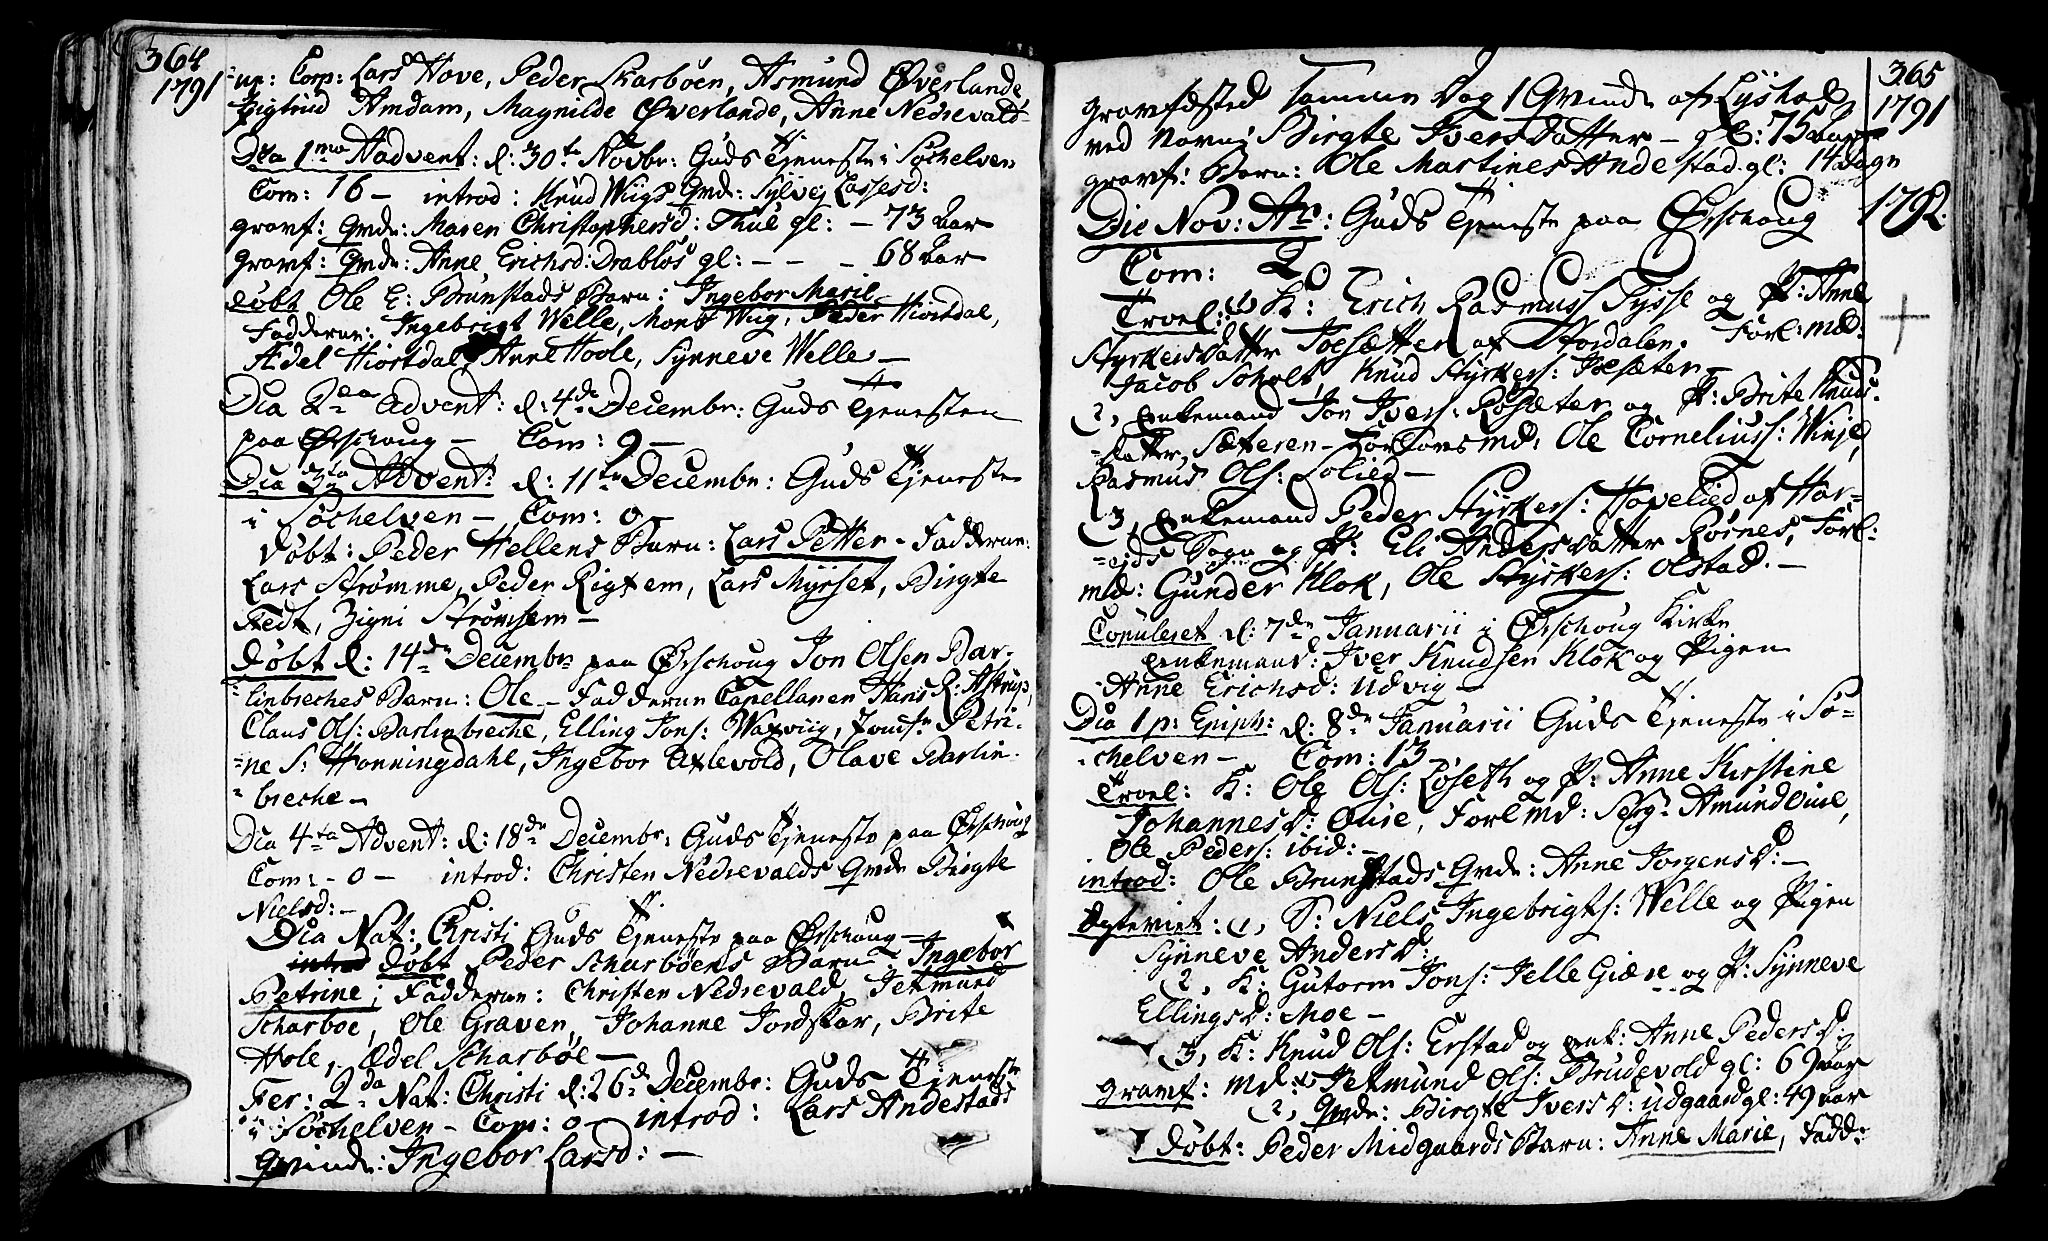 364
1791
=ne: Corp: Lars Hove, Peder Skarbøen, Asmund Øverlande
Sigtrud Amdam, Magnilde Øverlande, Anne Nedrevald-
Dca 1ma Aadvent: d: 30te Novbr: Guds Tjeneste i Søchelven
Com: 16 - introd: Knud Wiigs Qvd: Sylvej Lassesd:
gravf: Qvde: Maren Christophersd: Thue gl: - 73 Aar
gravf: Qvde: Anne Erichsd: Drabløs gl: - - - 68 Aar
døbt Ole E: Brunstads Barn: Ingebor Marie
Fadderne: Ingebrigt Welle, Mons Wiig, Peder Hiortdal,
Ædel Hiortdal, Anne Hoole, Synneve Welle -
Dca 2da Advent: d: 4de Decembr: Guds Tjenesten
paa Ørschoug - Com: 9 -
Dca 3tia Advent: d: 11te Decembr: Guds Tjeneste
i Søchelven - Com: 0 -
døbt: Peder Hellens Barn: Lars Petter - Fadderne:
Lars Strømme, Peder Rigtem, Lars Myrset, Birgte
Tedt, Zigni Strømsem -
døbt d: 14de Decembr paa Ørschoug Jon Olsen Bar-
=linbreches Barn: Ole - Fadderne Capellanen Hans R: Astrup,
Claus Ols: Barlinbreche, Elling Jons: Waxviig, Jomfr Petri-
=ne S: Honningdahl, Ingebor Axlevold, Olave Barlin-
=breche -
Dca 4ta Advent: d: 18de Decembr: Guds Tjeneste paa Ørschoug
Com: - 0 - introd: Christen Nedrevalds Qvde Birgte
Nielsd: -
Dca Nat: Christi Guds Tjeneste paa Ørschoug -
introd døbt Peder Scharbøens Barn: Ingebor
Petrine; Fadderne: Christen Nedrevald, Jetmund
Scharboe, Ole Graven, Johanne Jordskar, Brite
Hole, Ædel Scharbøe -
Fer: 2da Nat: Christi d: 26de Decembr: Guds Tjeneste
i Søchelven - Com: 0 - introd: Lars Andestads
Qvinde: Ingebor Larsd: -
365
1791
gravfæsted samme Dag 1 Qvinde af Lystad
ved Navn: Birgte Ivers Datter - gl: 75 Aar
gravf: Barn: Ole Martines Andestad gl: 14 dage
1792.
Die Nov: An: Guds Tjeneste paa Ørschoug
Com: 2 -
Troel: 1, K: Erich Rasmuss Tysse og P: Anne
Styrkersdatter Joesætter af Stordalen. Forl: md:
Jacob Scholt, Knud Styrkers: Joesæter -
2, Enkemand Jon Ivers: Rosæter og P: Brite Knuds-
=datter Sæteren - Forlovs md: Ole Corneliuss: Winje,
Rasmus Ols: Solied -
3, Enkemand Peder Styrkers: Hovelied af Har-
=ejds Sogn og P: Eli Anders datter Rørnes, Forl:
md: Gunder Klok, Ole Styrkers: Olstad. -
Copuleret d: 7de Januarii i Ørschoug Kirke
Enkemand: Iver Knudsen Klok og Pigen
Anne Erichsd: Udvig -
Dca 1 p: Epiph: d: 8de Januarii Guds Tjeneste i Sø-
-chelven - Com: 13 -
Troel: K: Ole Ols: Løseth og P: Anne Kirstine
Johannes D: Ouse, Forl md: Serg: Amund Ouse,
Ole Peders: ibid: -
introd: Ole Brunstads Qvde: Anne Jorgens D: -
Ægteviet: 1, S: Niels Ingebrigts: Welle og Pigen
Synneve Anders D:
2, K: Gutorm Jons: Jelle Giære og P: Synneve
Ellings D: Moe -
3, K: Knud Ols: Erstad og Enk: Anne Peders D:
gravf: md: 1, Jetmund Ols: Brudevold gl: 69 Aar
2, Qvde: Birgte Ivers D: Udgaard gl: 49 Aar
døbt: Peder Midgaards Barn: Anne Marie, Fadd: